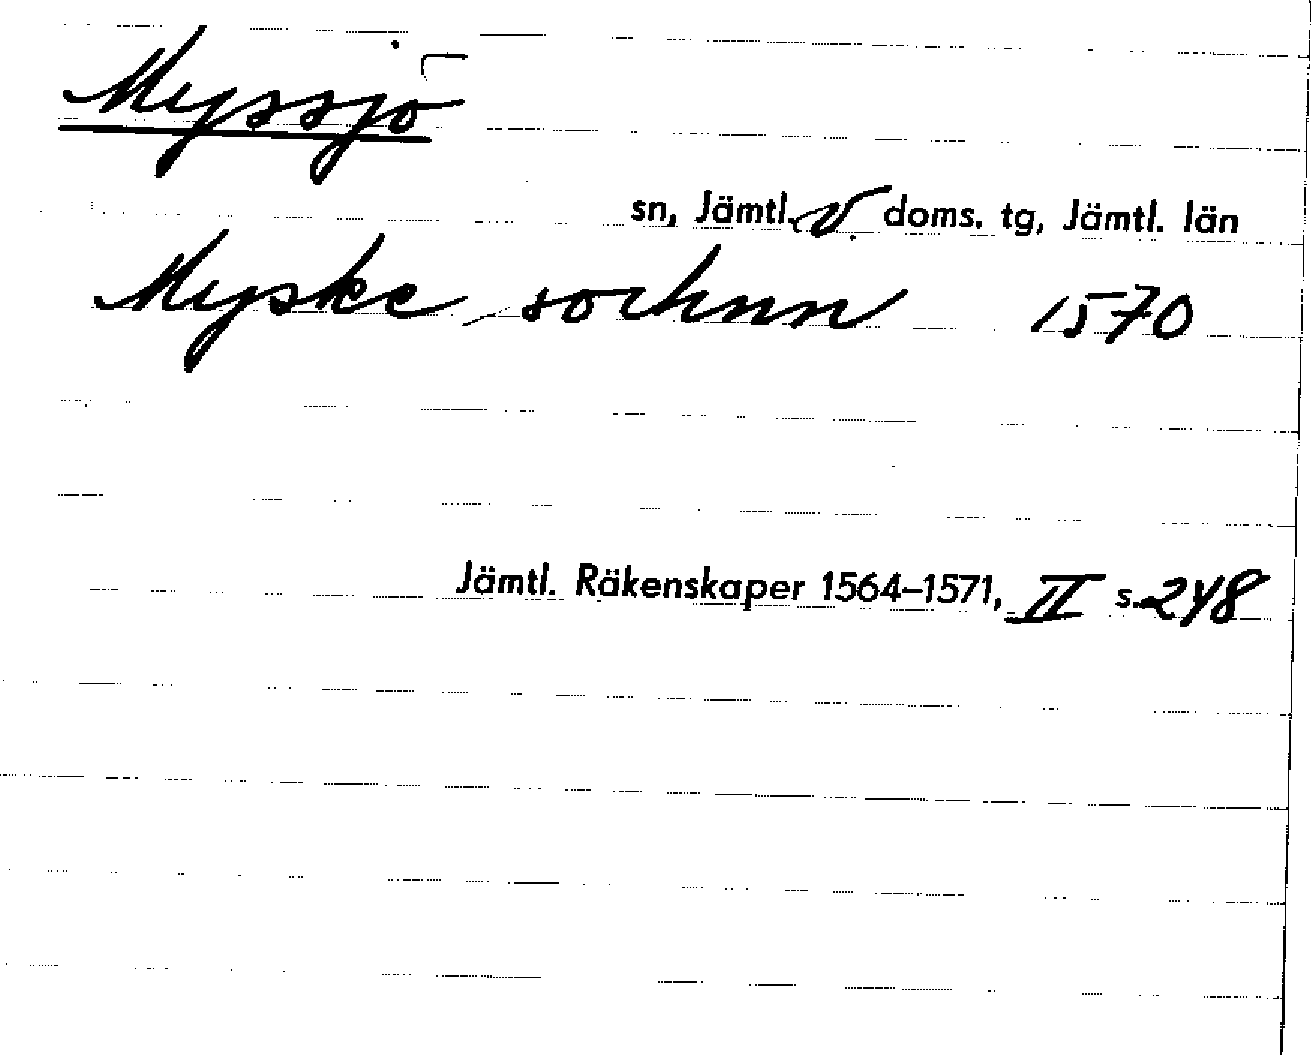 Myssjö
sn, Jämtl. v. doms. tg, Jämtl. län
Myske sochnn 1570
Jämtl. Räkenskaper 1564–1571, II s. 248